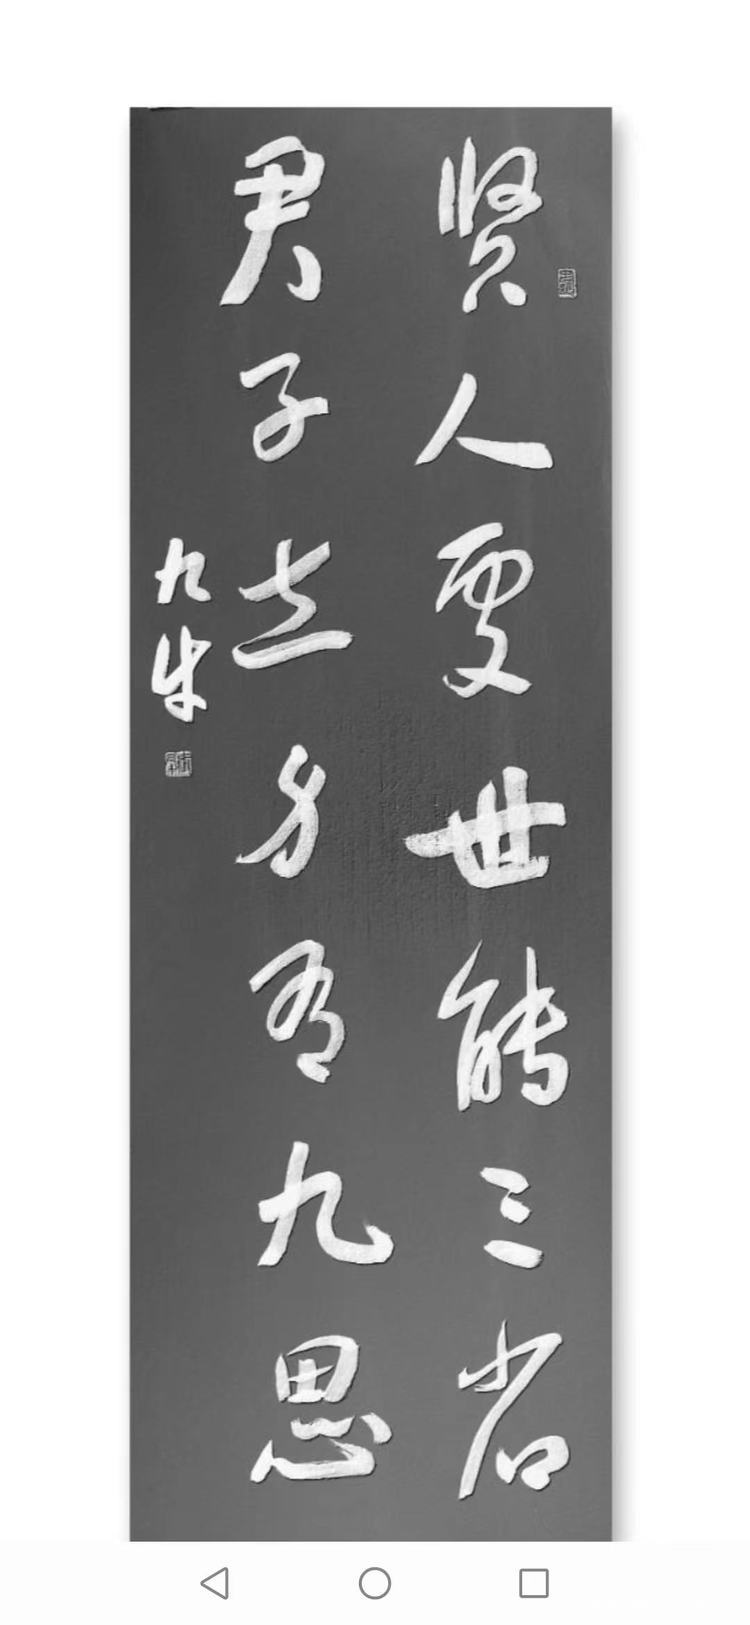 贤人处世能三省
君子立身有九思
九牛